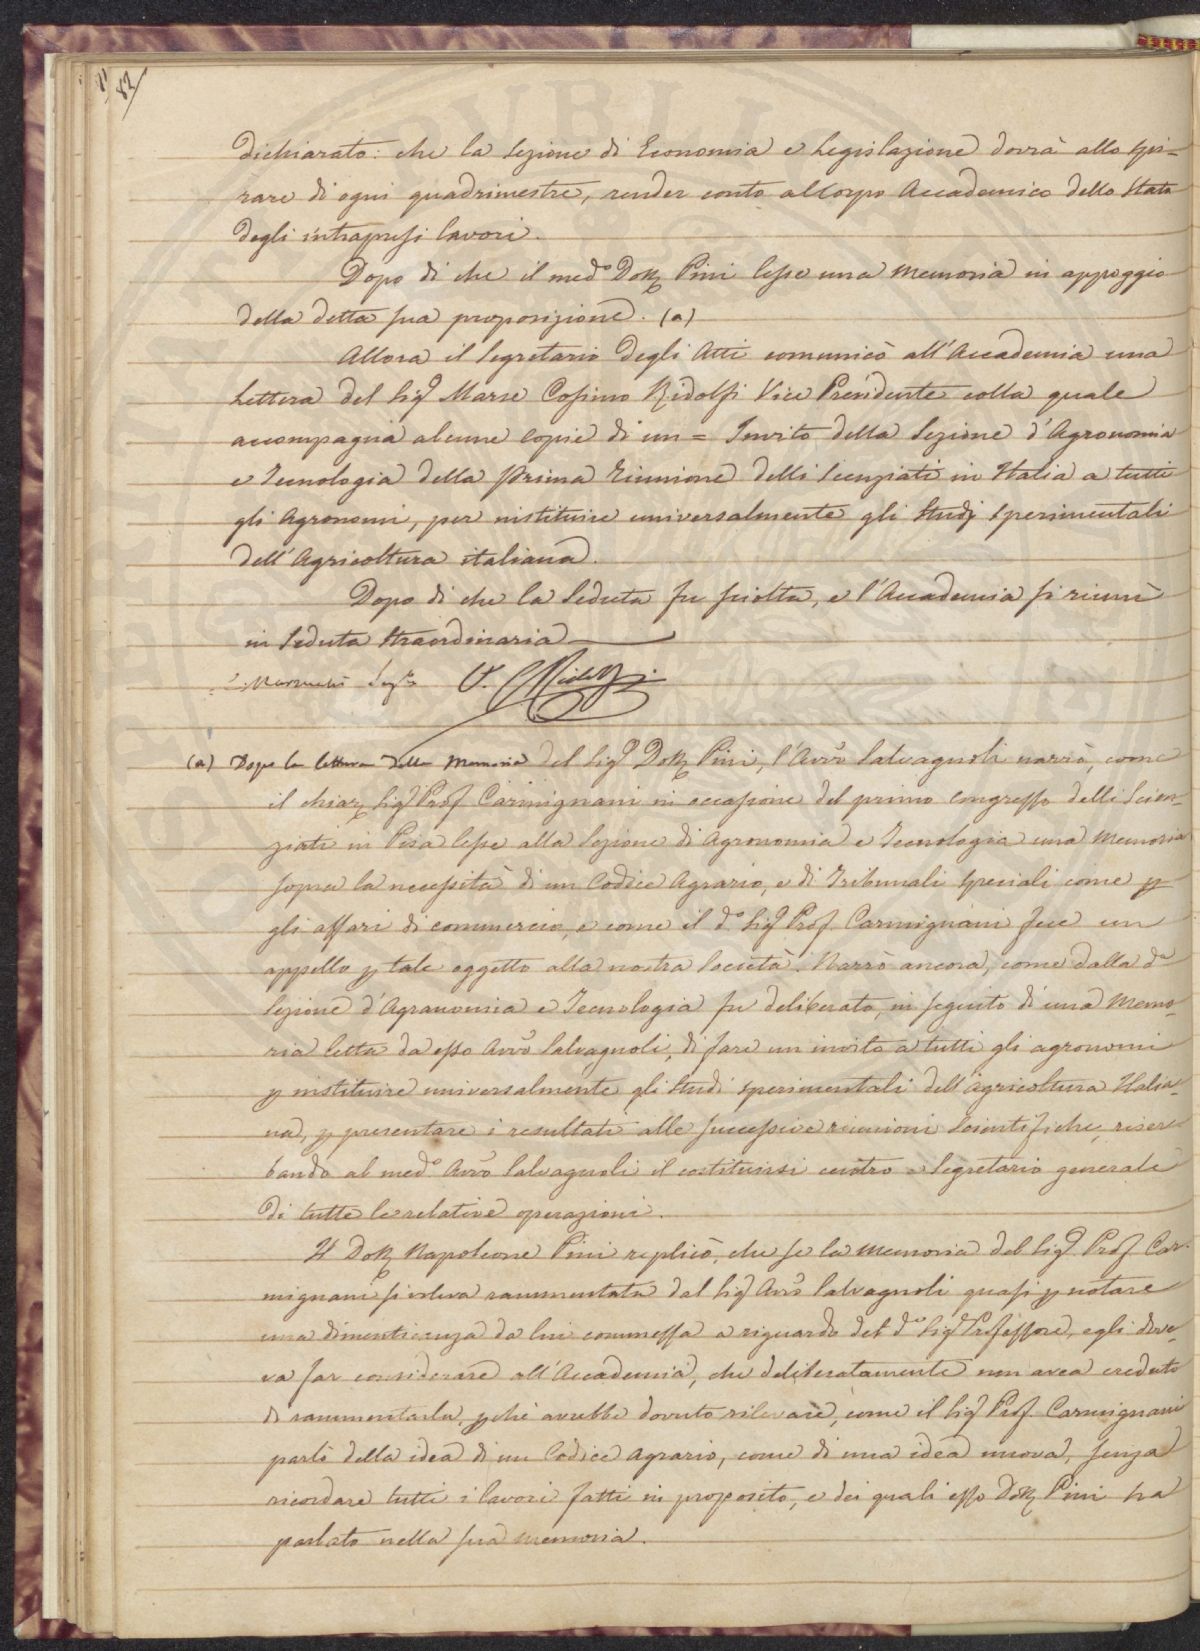 82
dichiarato: che la Sezione di Economia e Legislazione dovrà allo spi=
rare di ogni quadrimestre, render conto al Corpo Accademico dello Stato
degli intrapresi lavori.
Dopo di che il med.º Dott. Pini lesse una Memoria in appoggio
della detta sua proposizione. (a)
Allora il Segretario degli Atti comunicò all'Accademia una
Lettera del Sig. Marse Cosimo Ridolfi Vice Presidente colla quale
accompagna alcune copie di un = Invito della Sezione d'Agronomia
e Tecnologia della prima riunione delli Scenziati in Italia a tutti
gli Agronomi, per instituire universalmente gli Studj sperimentali
dell'Agricoltura italiana.
Dopo di che la Seduta fu sciolta, e l'Accademia si riunì
in Seduta Straordinaria
Segr.
(a) Dopo la lettura della Memoria del Sig. Dott. Pini, l'Avv. Salvagnoli narrò, come
il chiar. Sig. Prof. Carmignani in occasione del primo Congresso delli Scien=
ziati in Pisa lesse alla Sezione di Agronomia e Tecnologia una Memoria
sopra la necessità di un Codice Agrario, e di Tribunali speciali come p
gli affari di commercio, e come il d.º Sig. Prof. Carmignani fece un
appello p tale oggetto alla nostra Società. Narrò ancora, come dalla d.a
Sezione d'Agronomia e Tecnologia fu deliberato, in seguito di una Memo=
ria letta da esso Avv. Salvagnoli, di fare un invito a tutti gli agronomi
p instituire universalmente gli Studi sperimentali dell'Agricoltura Italia=
na, p presentare i resultati alle successive riunioni Scientifiche, riser
bando al med.º Avv. Salvagnoli il costituirsi centro e Segretario generale
di tutte le relative operazioni.
Il Dott. Napoleone Pini replicò, che se la Memoria del Sig. Prof. Car=
mignani si voleva rammentata dal Sig. Avv. Salvagnoli quasi p notare
una dimenticanza da lui commessa a riguardo del d.º Sig. Professore, egli dove=
va far considerare all'Accademia, che deliberatamente non avea creduto
di rammentarla, pchè avrebbe dovuto rilevare, come il Sig. Prof. Carmignani
parlò della idea di un Codice Agrario, come di una idea nuova, senza
ricordare tutti i lavori fatti in proposito, e dei quali esso Dott. Pini ha
parlato nella sua Memoria.